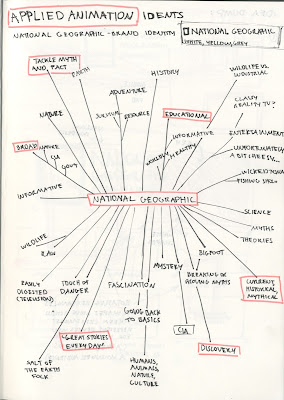 APPLIED ANIMATION IDENTS
NATIONAL GEOGRAPHIC - BRAND IDENTITY
NATIONAL GEOGRAPHIC
WHITE, YELLOW, GREY
TACKLE MYTH
AND FACT
EARTH
HISTORY
WILDLIFE VS.
INDUSTRIAL
ADVENTURE
CLASSY
REALITY TV?
NATURE
SURVIVAL
RESOURCE
EDUCATIONAL
INFORMATIVE
ENTERTAINMENT
BROAD
NATURE
CIA
GOVT
WORLDLY
HEALTHY
UNFORTUNATELY
A BIT CHEESY...
WICKED TUNA
FISHING
INFORMATIVE
NATIONAL GEOGRAPHIC
SCIENCE
MYTHS
THEORIES
WILDLIFE
RAW
BIGFOOT
MYSTERY
EASILY
DIGESTED
(TELEVISION)
TOUCH OF
DANGER
FASCINATION
BREAKING OR
PROVING MYTHS
CURRENT,
HISTORICAL,
MYTHICAL
GOING BACK
TO BASICS
CIA
"GREAT STORIES
EVERY DAY"
DISCOVERY
SALT OF
THE EARTH
FOLK
HUMANS,
ANIMALS,
NATURE,
CULTURE